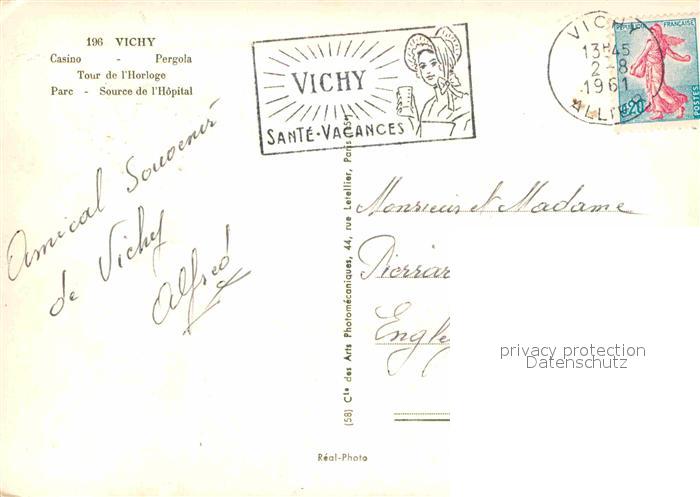 196 VICHY
Casino - Pergola
Tour de l'Horloge
Parc - Source de l'Hôpital
VICHY
SANTÉ-VACANCES
VICHY
13H45
2-8
1961
ALLIER
RÉPUBLIQUE FRANÇAISE
0,20
POSTES
Amical Souvenir
de Vichy
Alfred
(58) Cie des Arts Photomécaniques, 44, rue Letellier, Paris
Monsieur et Madame
Pierrar
Engl
privacy protection
Datenschutz
Réal-Photo